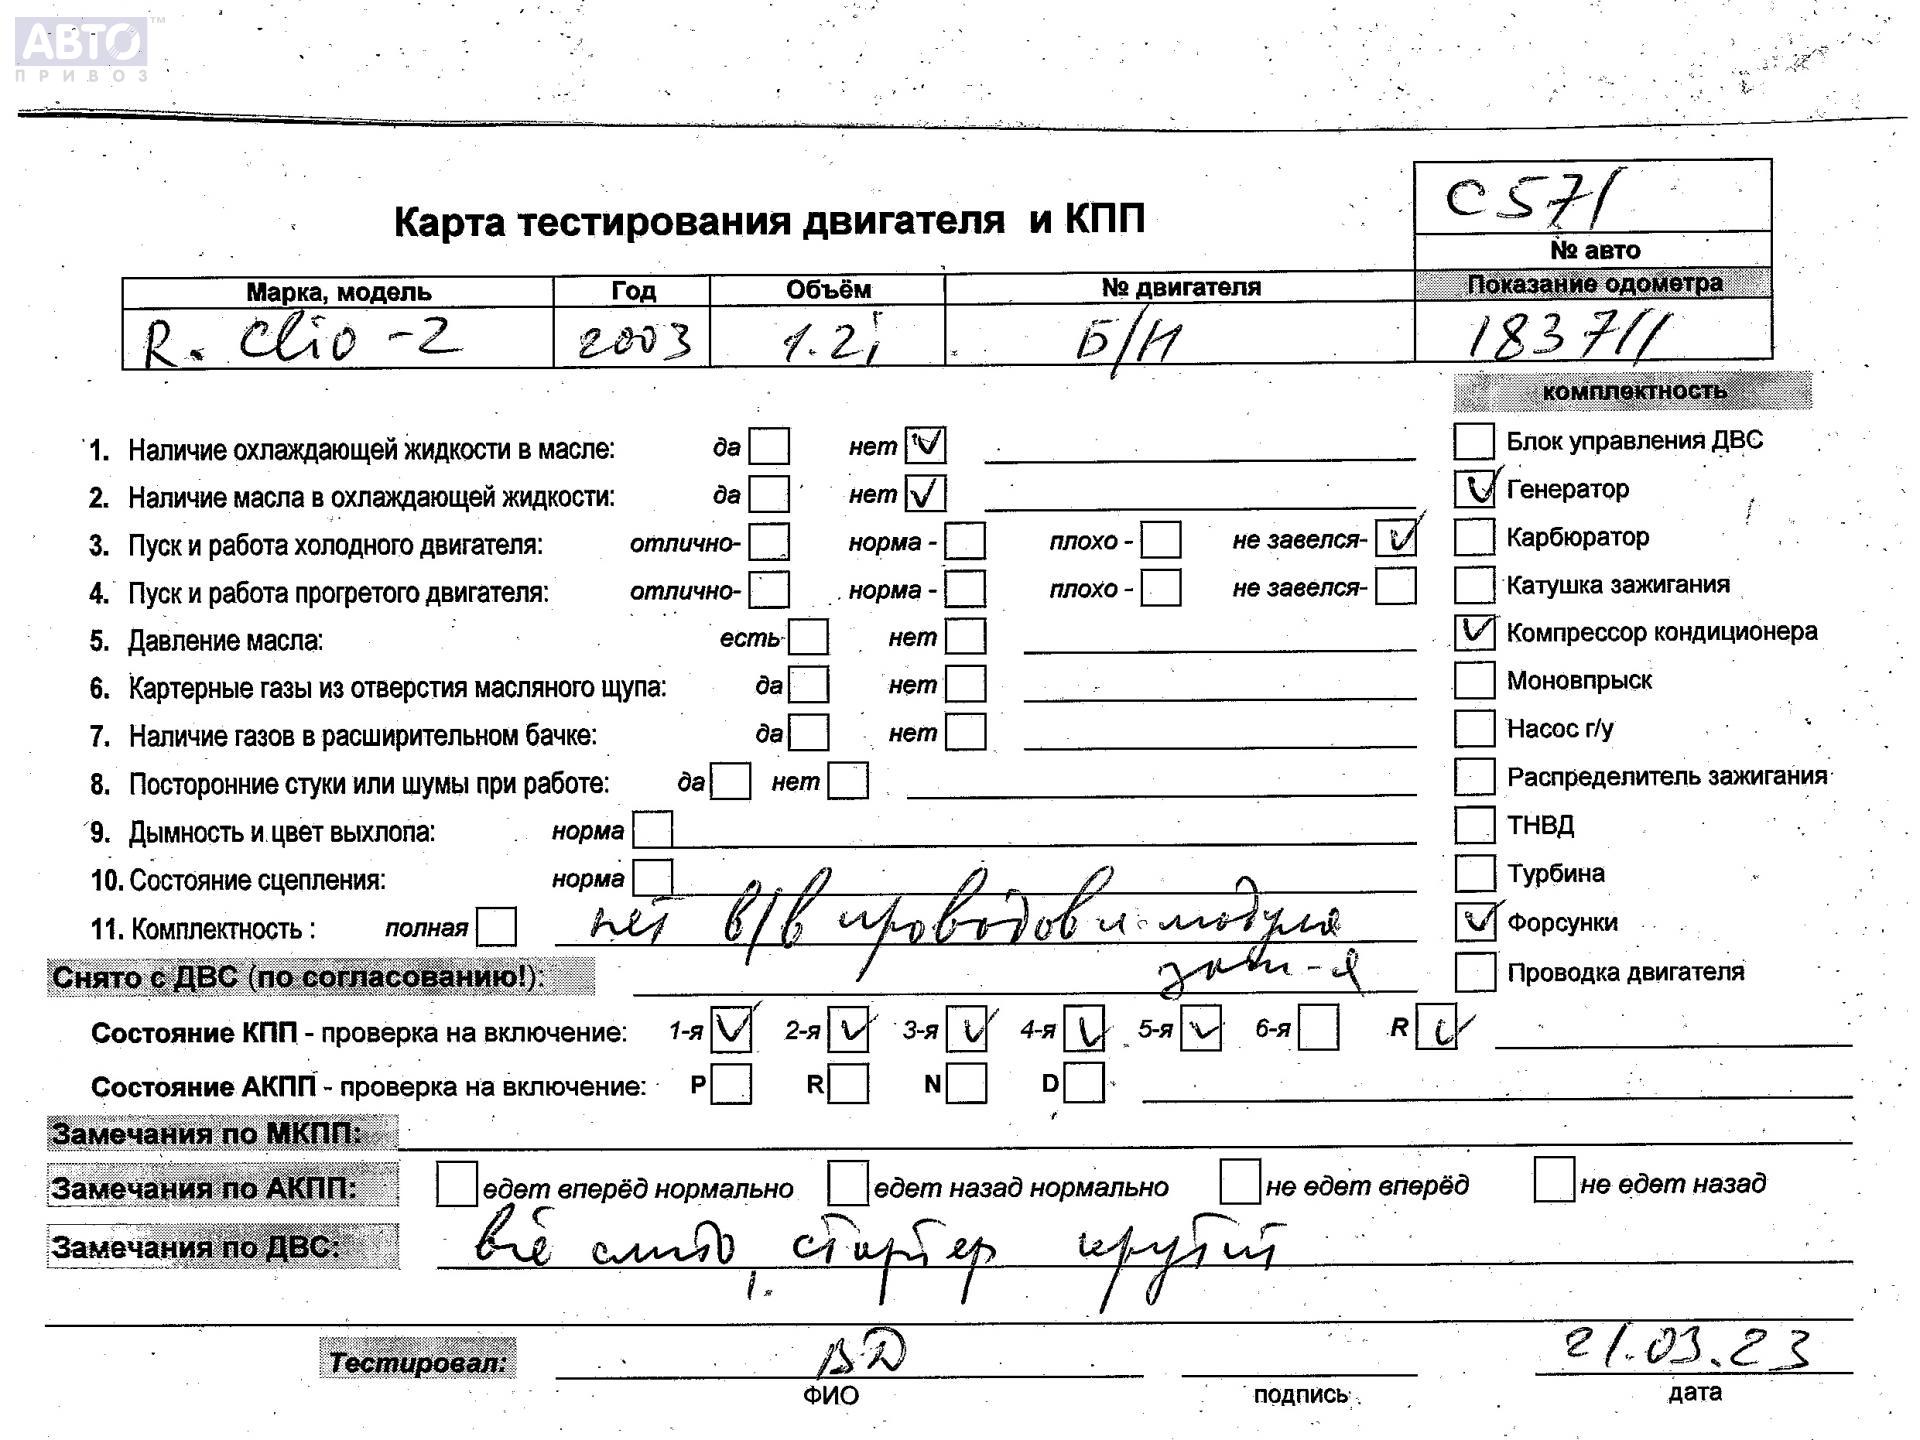 АВТО™
ПРИВОЗ
С571
Карта тестирования двигателя и КПП
№ авто
Марка, модель Год Объём № двигателя Показание одометра
R. Clio -2 2003 1.2i Б/Н 183711
комплектность
1. Наличие охлаждающей жидкости в масле: да нет Блок управления ДВС
2. Наличие масла в охлаждающей жидкости: да нет Генератор
3. Пуск и работа холодного двигателя: отлично- норма - плохо - не завелся- Карбюратор
4. Пуск и работа прогретого двигателя: отлично- норма - плохо - не завелся- Катушка зажигания
5. Давление масла: есть нет Компрессор кондиционера
6. Картерные газы из отверстия масляного щупа: да нет Моновпрыск
7. Наличие газов в расширительном бачке: да нет Насос г/у
8. Посторонние стуки или шумы при работе: да нет Распределитель зажигания
9. Дымность и цвет выхлопа: норма ТНВД
10. Состояние сцепления: норма Турбина
11. Комплектность : полная нет в/в проводов и модуля Форсунки
заж-я
Снято с ДВС (по согласованию!): Проводка двигателя
Состояние КПП - проверка на включение: 1-я 2-я 3-я 4-я 5-я 6-я R
Состояние АКПП - проверка на включение: P R N D
Замечания по МКПП:
Замечания по АКПП: едет вперёд нормально едет назад нормально не едет вперёд не едет назад
Замечания по ДВС: всё слито, стартер крутит
Тестировал: ВД 21.03.23
ФИО подпись дата